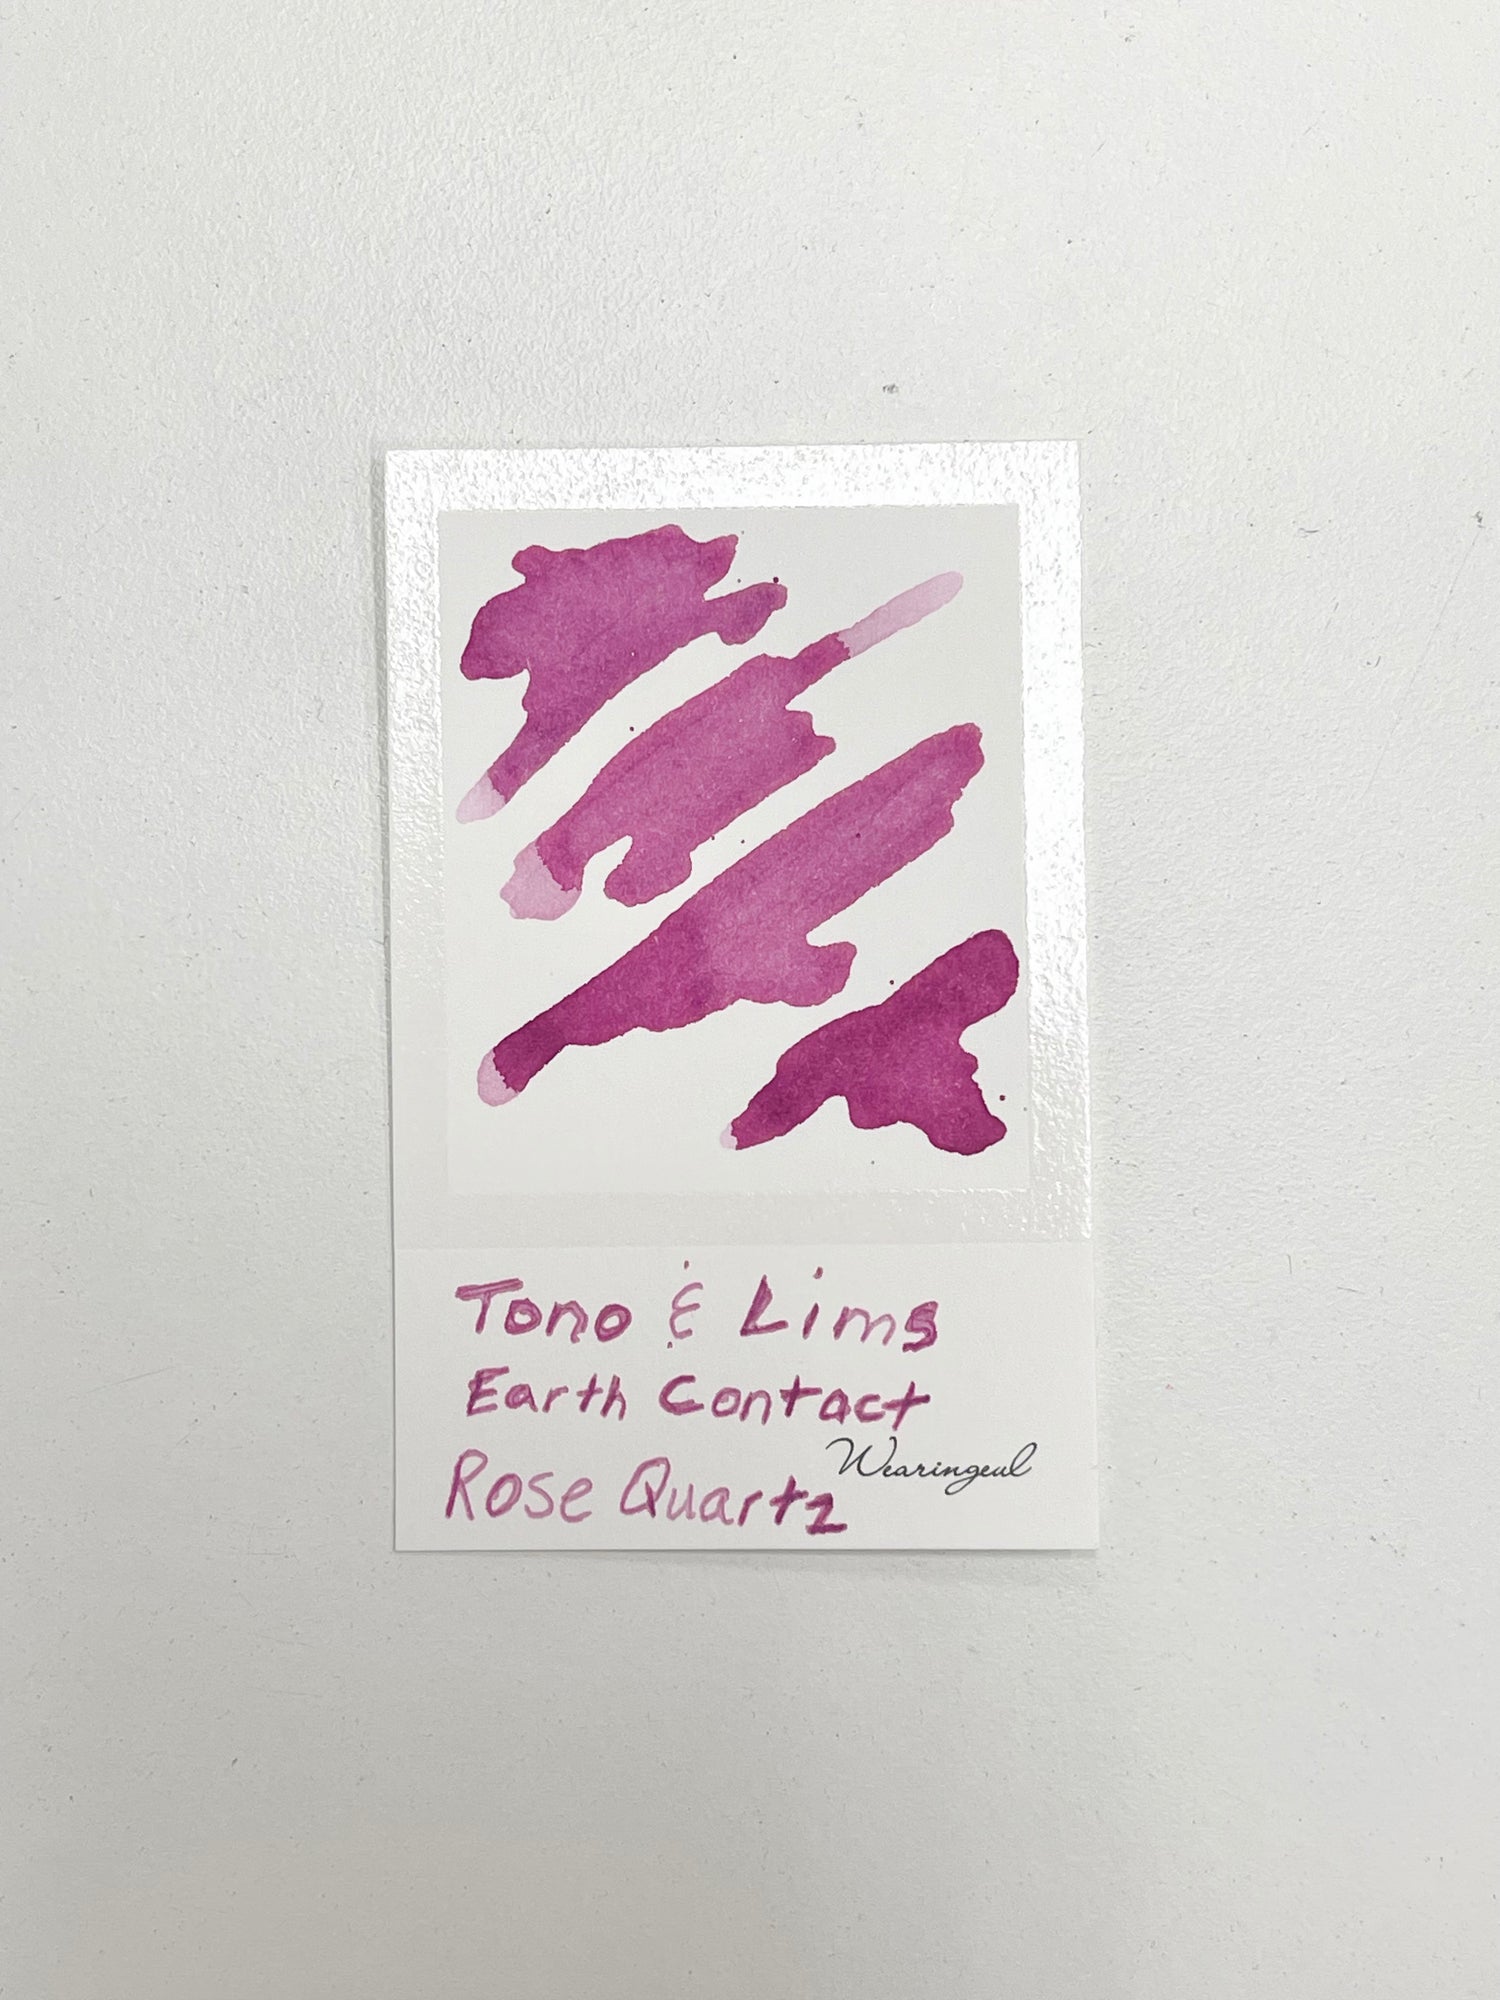 Tono & Lims
Earth Contact
Wearingeul
Rose Quartz